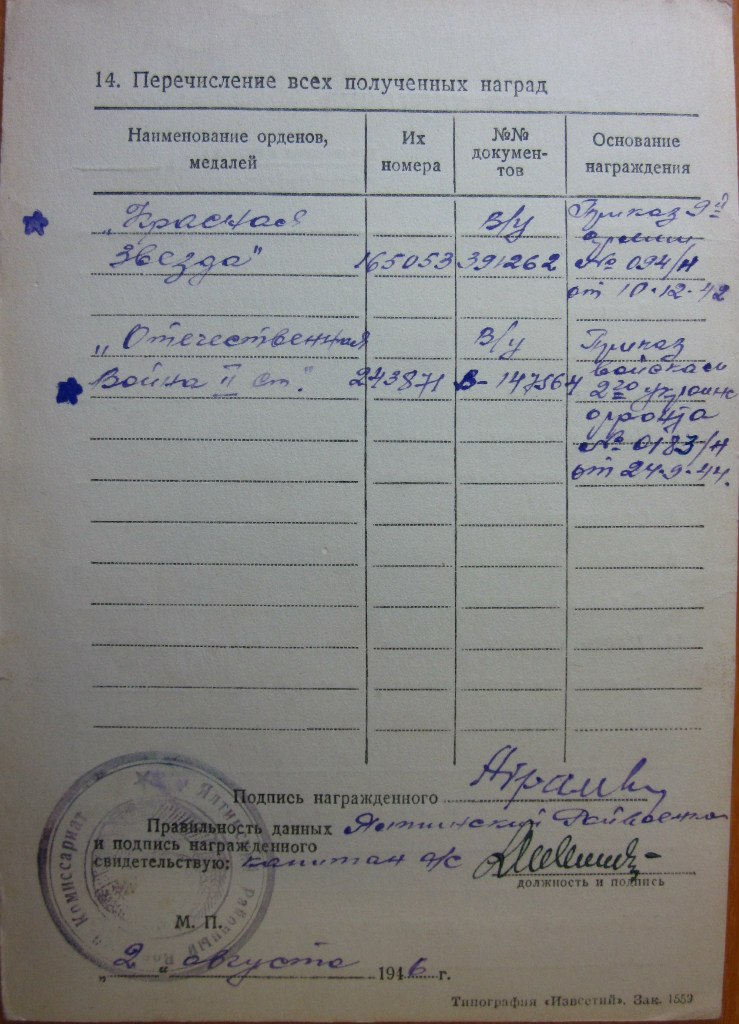 14. Перечисление всех полученных наград
Наименование орденов, медалей
Их номера
№№ документов
Основание награждения
„Красная
Звезда"
165053
В/у
391262
Приказ 9й
армии
№ 094/н
от 10.12.42
„Отечественная
Война II ст."
243871
В/у
В-147564
Приказ
войскам
2го украинс
фронта
№ 0183/н
от 24.9.44.
Подпись награжденного
Правильность данных
и подпись награженного
свидетельствую:
Ялтинский Райвоенком
капитан а/с
должность и подпись
Комиссариат
М. П.
„2" августа 1946 г.
Типография «Известий». Зак. 1559